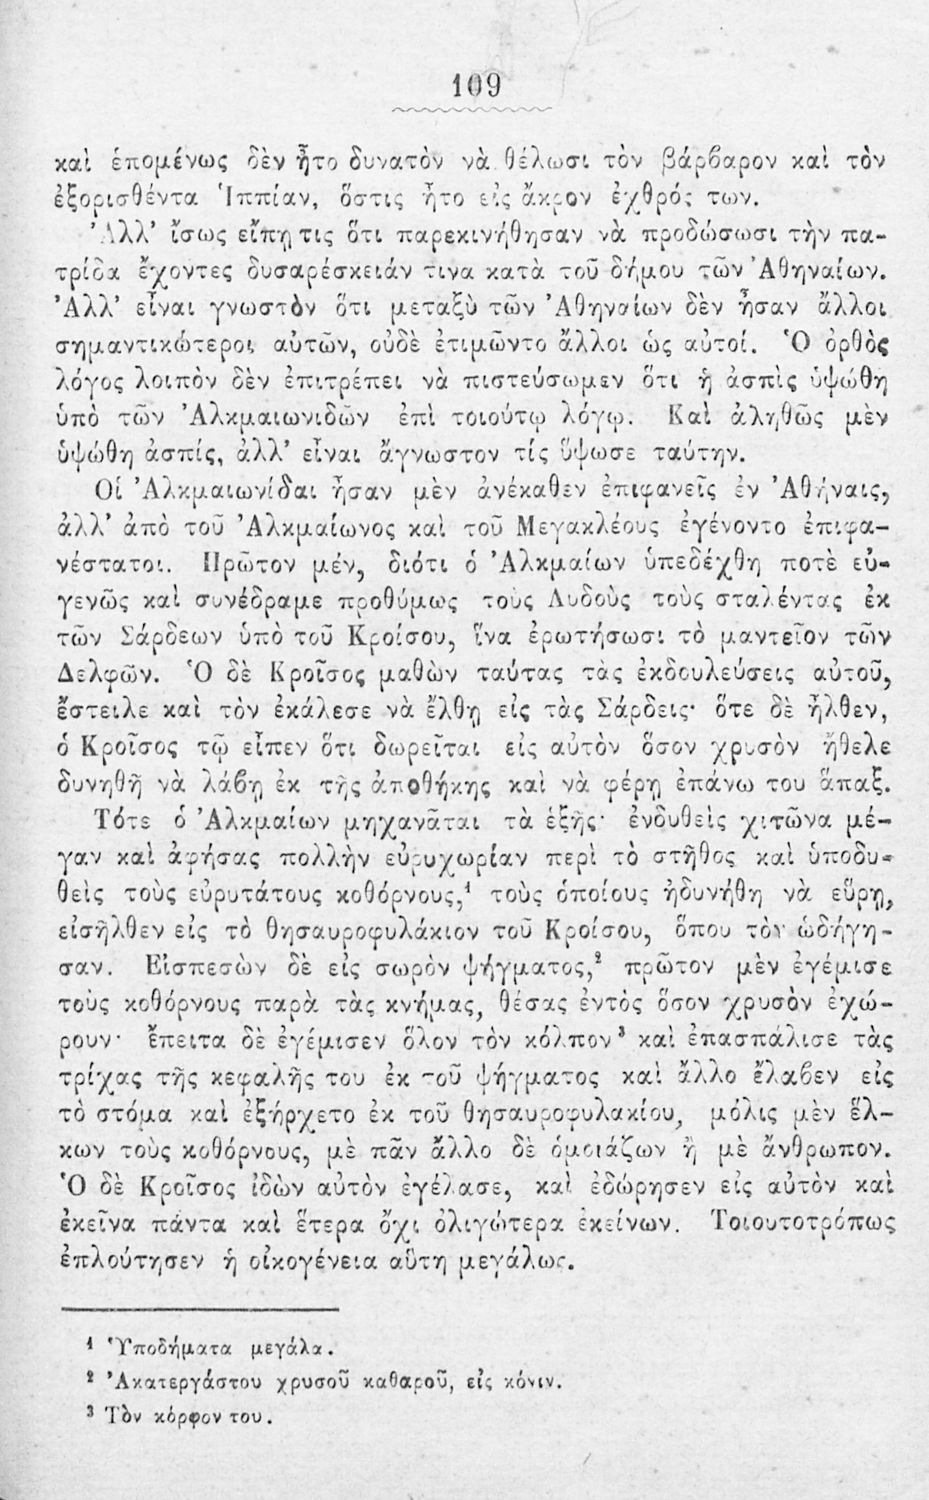 109
καὶ ἑπομένως δὲν ἦτο δυνατὸν νὰ θέλωσι τὸν βάρβαρον καὶ τὸν
ἐξορισθέντα Ἱππίαν, ὅστις ἦτο εἰς ἄκρον ἐχθρός των.
Ἀλλ' ἴσως εἴπῃ τις ὅτι παρεκινήθησαν νὰ προδώσωσι τὴν πα-
τρίδα ἔχοντες δυσαρέσκειάν τινα κατὰ τοῦ δήμου τῶν Ἀθηναίων.
Ἀλλ' εἶναι γνωστὸν ὅτι μεταξὺ τῶν Ἀθηναίων δὲν ἦσαν ἄλλοι
σημαντικώτεροι αὐτῶν, οὐδὲ ἐτιμῶντο ἄλλοι ὡς αὐτοί. Ὁ ὀρθὸς
λόγος λοιπὸν δὲν ἐπιτρέπει νὰ πιστεύσωμεν ὅτι ἡ ἀσπὶς ὑψώθη
ὑπὸ τῶν Ἀλκμαιωνιδῶν ἐπὶ τοιούτῳ λόγῳ. Καὶ ἀληθῶς μὲν
ὑψώθη ἀσπίς, ἀλλ' εἶναι ἄγνωστον τίς ὕψωσε ταύτην.
Οἱ Ἀλκμαιωνίδαι ἦσαν μὲν ἀνέκαθεν ἐπιφανεῖς ἐν Ἀθήναις,
ἀλλ' ἀπὸ τοῦ Ἀλκμαίωνος καὶ τοῦ Μεγακλέους ἐγένοντο ἐπιφα-
νέστατοι. Πρῶτον μέν, διότι ὁ Ἀλκμαίων ὑπεδέχθη ποτὲ εὐ-
γενῶς καὶ συνέδραμε προθύμως τοὺς Λυδοὺς τοὺς σταλέντας ἐκ
τῶν Σάρδεων ὑπὸ τοῦ Κροίσου, ἵνα ἐρωτήσωσι τὸ μαντεῖον τῶν
Δελφῶν. Ὁ δὲ Κροῖσος μαθὼν ταύτας τὰς ἐκδουλεύσεις αὐτοῦ,
ἔστειλε καὶ τὸν ἐκάλεσε νὰ ἔλθῃ εἰς τὰς Σάρδεις· ὅτε δὲ ἦλθεν,
ὁ Κροῖσος τῷ εἶπεν ὅτι δωρεῖται εἰς αὐτὸν ὅσον χρυσὸν ἤθελε
δυνηθῆ νὰ λάβῃ ἐκ τῆς ἀποθήκης καὶ νὰ φέρῃ ἐπάνω του ἅπαξ.
Τότε ὁ Ἀλκμαίων μηχανᾶται τὰ ἑξῆς· ἐνδυθεὶς χιτῶνα μέ-
γαν καὶ ἀφήσας πολλὴν εὐρυχωρίαν περὶ τὸ στῆθος καὶ ὑποδυ-
θεὶς τοὺς εὐρυτάτους κοθόρνους,¹ τοὺς ὁποίους ἠδυνήθη νὰ εὕρῃ,
εἰσῆλθεν εἰς τὸ θησαυροφυλάκιον τοῦ Κροίσου, ὅπου τὸν ὡδήγη-
σαν. Εἰσπεσὼν δὲ εἰς σωρὸν ψήγματος,² πρῶτον μὲν ἐγέμισε
τοὺς κοθόρνους παρὰ τὰς κνήμας, θέσας ἐντὸς ὅσον χρυσὸν ἐχώ-
ρουν· ἔπειτα δὲ ἐγέμισεν ὅλον τὸν κόλπον³ καὶ ἐπασπάλισε τὰς
τρίχας τῆς κεφαλῆς του ἐκ τοῦ ψήγματος καὶ ἄλλο ἔλαβεν εἰς
τὸ στόμα καὶ ἐξήρχετο ἐκ τοῦ θησαυροφυλακίου, μόλις μὲν ἕλ-
κων τοὺς κοθόρνους, μὲ πᾶν ἄλλο δὲ ὁμοιάζων ἢ μὲ ἄνθρωπον.
Ὁ δὲ Κροῖσος ἰδὼν αὐτὸν ἐγέλασε, καὶ ἐδώρησεν εἰς αὐτὸν καὶ
ἐκεῖνα πάντα καὶ ἕτερα ὄχι ὀλιγώτερα ἐκείνων. Τοιουτοτρόπως
ἐπλούτησεν ἡ οἰκογένεια αὕτη μεγάλως.
¹ Ὑποδήματα μεγάλα.
² Ἀκατεργάστου χρυσοῦ καθαροῦ, εἰς κόνιν.
³ Τὸν κόρφον του.